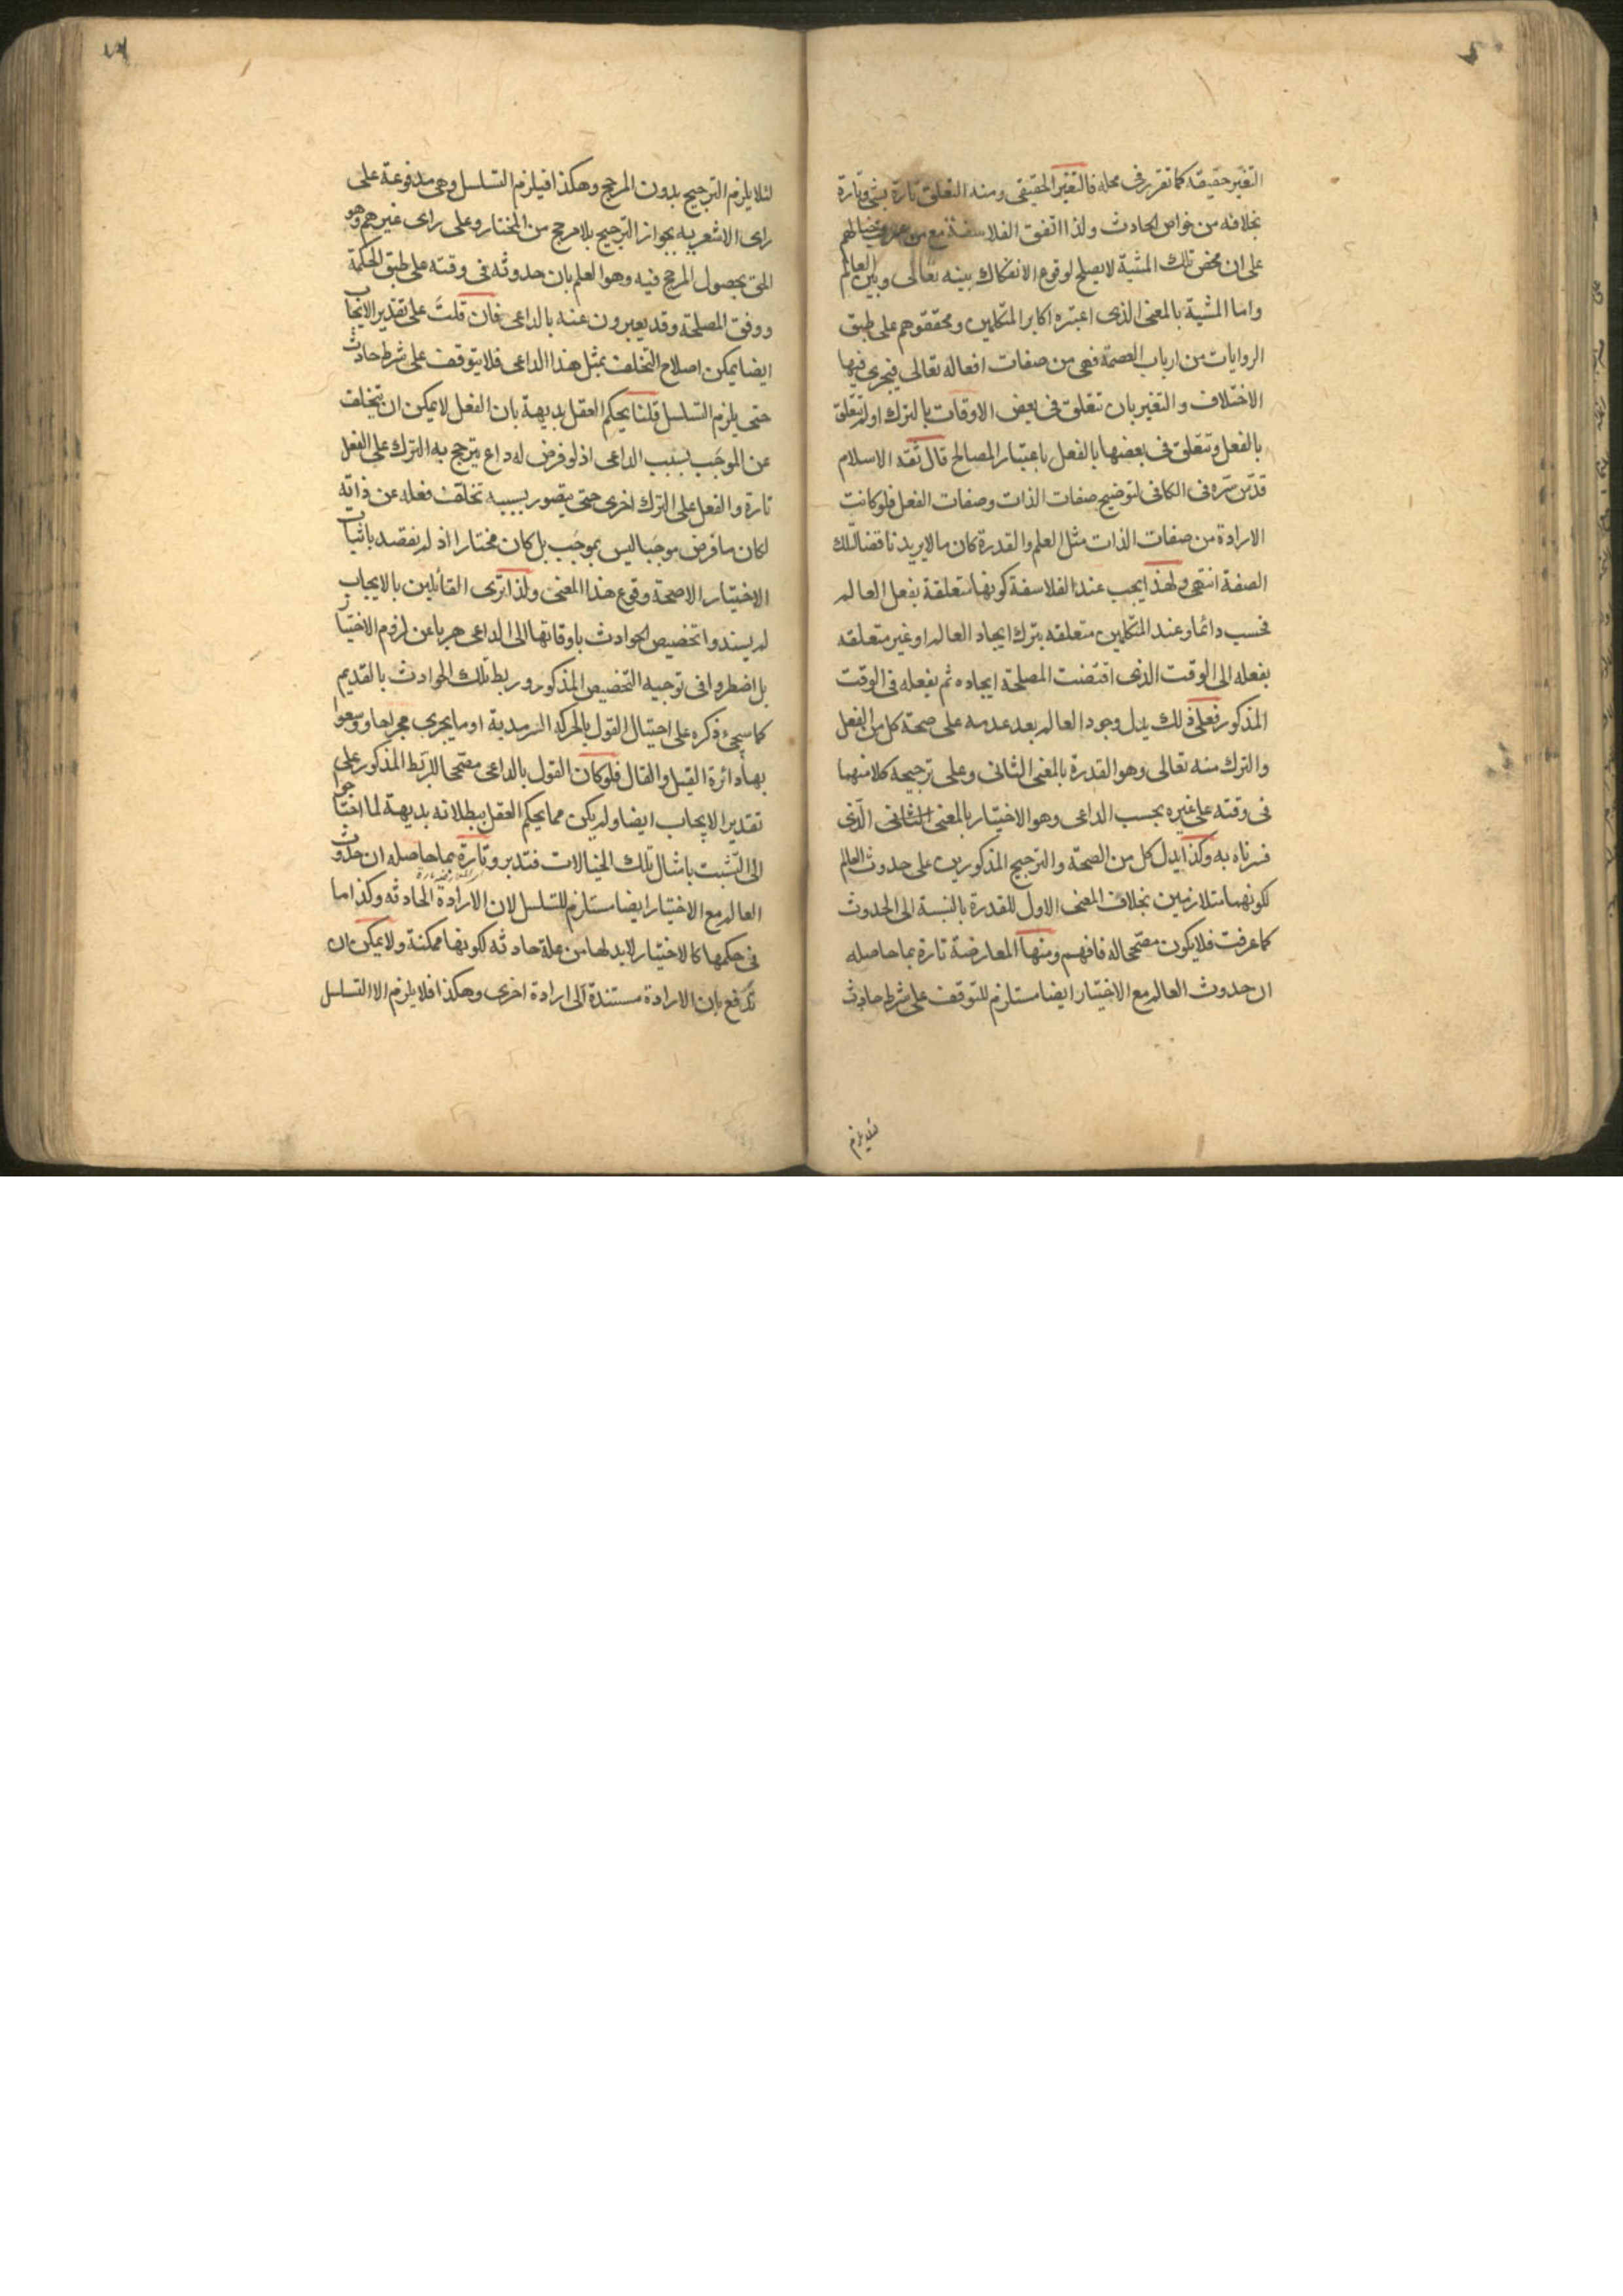 التغير حقيقة كما تقرر فى محله فالتغير الحقيقى ومنه التعلق تارة بشئ وتارة
بخلافه من خواص الحادث ولذا اتفق الفلاسفة مع من
على ان محض تلك المشية لا يصلح لوقوع الانفكاك بينه تعالى وبين العالم
واما المشية بالمعنى الذى اعتبره اكابر المتكلمين ومحققوهم على طبق
الروايات من ارباب العصمة فهى من صفات افعاله تعالى فيجرى فيها
الاختلاف والتغير بان تتعلق فى بعض الاوقات بالترك او لم تتعلق
بالفعل وتتعلق فى بعضها بالفعل باعتبار المصالح قال ثقه الاسلام
قدس سره فى الكافى لتوضيح صفات الذات وصفات الفعل فلو كانت
الارادة من صفات الذات مثل العلم والقدرة كان ما لا يريد ناقضا لتلك
الصفة انتهى ولهذا يجب عند الفلاسفة كونها متعلقة بفعل العالم
فحسب دائما وعند المتكلمين متعلقه بترك ايجاد العالم او غير متعلقه
بفعله الى الوقت الذى اقتضت المصلحة ايجاده ثم بفعله فى الوقت
المذكور فعلى ذلك يدل وجود العالم بعد عدمه على صحة كل من الفعل
والترك منه تعالى وهو القدرة بالمعنى الثانى وعلى ترجيحه كلا منهما
فى وقته على غيره بحسب الداعى وهو الاختيار بالمعنى الثانى الذى
فسرناه به وكذا يدل كل من الصحة والترجيح المذكورين على حدوث العالم
لكونهما متلازمين بخلاف المعنى الاول للقدرة بالنسبة الى الحدوث
كما عرفت فلا يكون مصححا له فافهم ومنها المعارضة تارة بما حاصله
ان حدوث العالم مع الاختيار ايضا مستلزم للتوقف على شرط حادث
لئلا يلزم
لئلا يلزم الترجيح بدون المرجح وهكذا فيلزم التسلسل وهى مدفوعة على
راى الاشعريه بجواز الترجيح بلا مرجح من المختار وعلى راى غيرهم وهو
الحق بحصول المرجح فيه وهو العلم بان حدوثه فى وقته على طبق الحكمة
ووفق المصلحة وقد يعبرون عنه بالداعى فان قلت على تقدير الايجاب
ايضا يمكن اصلاح التخلف بمثل هذا الداعى فلا يتوقف على شرط حادث
حتى يلزم التسلسل قلنا يحكم العقل بديهة بان الفعل لا يمكن ان يتخلف
عن الموجب بسبب الداعى اذ لو فرض له داع يترجح به الترك على الفعل
تارة والفعل على الترك اخرى حتى يتصور بسببه تخلف فعله عن ذاته
لكان ما فرض موجبا ليس بموجب بل كان مختارا اذ لم نقصد باثبات
الاختيار الا صحة وقوع هذا المعنى ولذا ترى القائلين بالايجاب
لم يسندوا تخصيص الحوادث باوقاتها الى الداعى هربا عن لزوم الاختيار
بل اضطروا فى توجيه التخصيص المذكور وربط تلك الحوادث بالقديم
كما سيجئ ذكره على احتيال القول بالحركة السرمدية او ما يجرى مجراها ووسعوا
بها دائرة القيل والقال فلو كان القول بالداعى مصححا للربط المذكور على
تقدير الايجاب ايضا ولم يكن مما يحكم العقل ببطلانه بديهة لما احتاجوا
الى التشبث بامثال تلك الخيالات فتدبر وتارة بما حاصله ان حدوث
العالم مع الاختيار ايضا مستلزم للتسلسل لان الارادة الحادثه وكذا ما
فى حكمها كالاختيار لا بد لها من علة حادثه لكونها ممكنة ولا يمكن ان
تدفع بان الارادة مستندة الى ارادة اخرى وهكذا فلا يلزم الا التسلسل